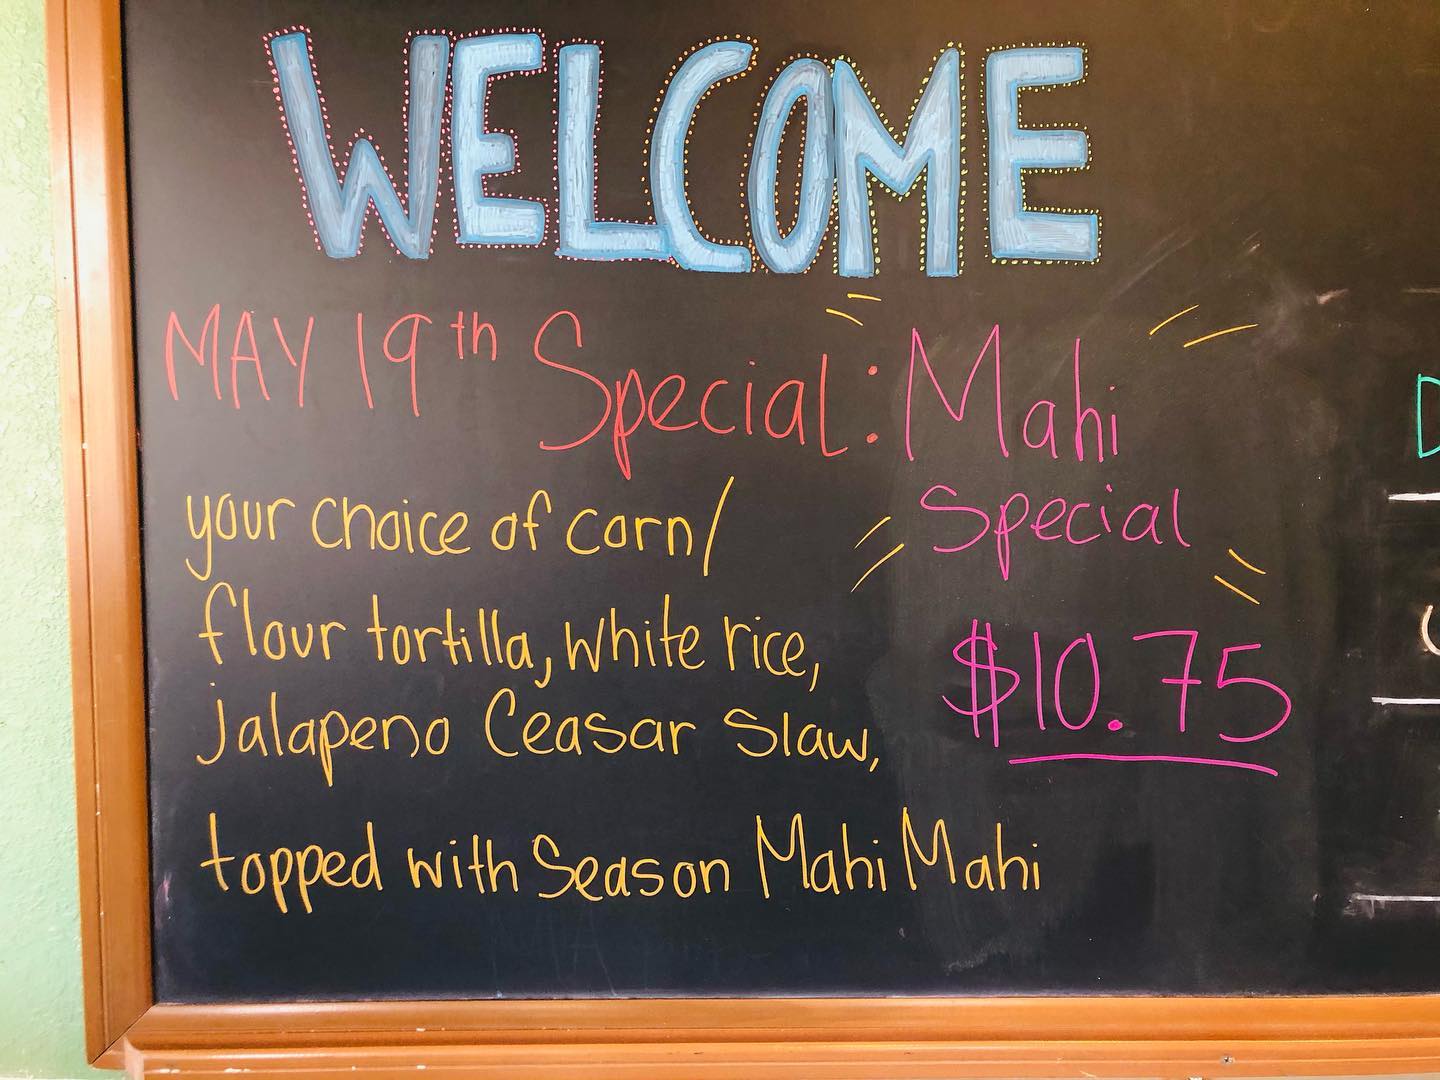 WELCOME
MAY 19th Special: Mahi
Special
$10.75
your choice of corn/
flour tortilla, white rice,
jalapeno Ceasar Slaw,
topped with Season Mahi Mahi